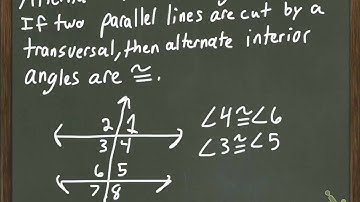 If two parallel lines are cut by a
transversal, then alternate interior
angles are ≅.
2 1
3 4
6 5
7 8
∠4≅∠6
∠3≅∠5